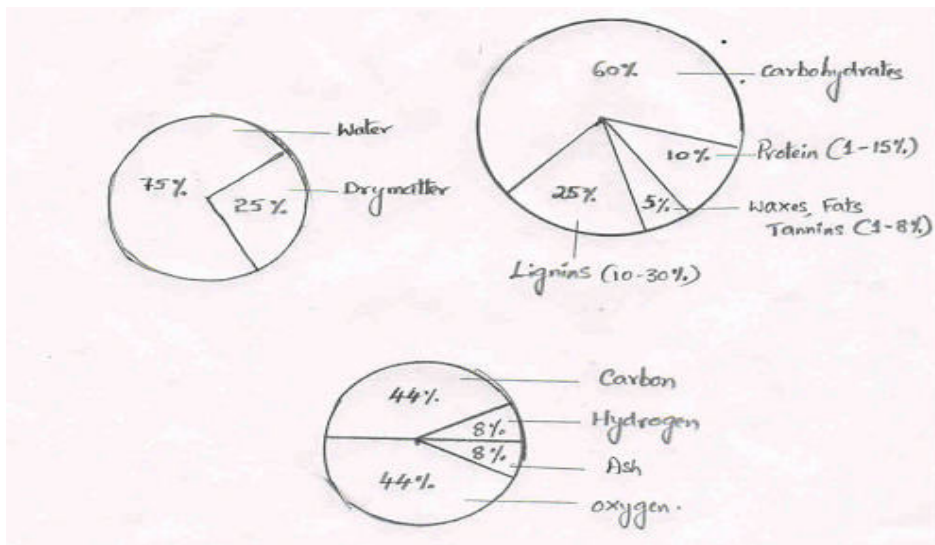 Water
75%
Drymatter
25%
60%
Carbohydrates
10%
Protein (1-15%)
25%
5%
Waxes, Fats
Tannins (1-8%)
Lignins (10-30%)
Carbon
44%
Hydrogen
8%
8%
Ash
44%
oxygen.